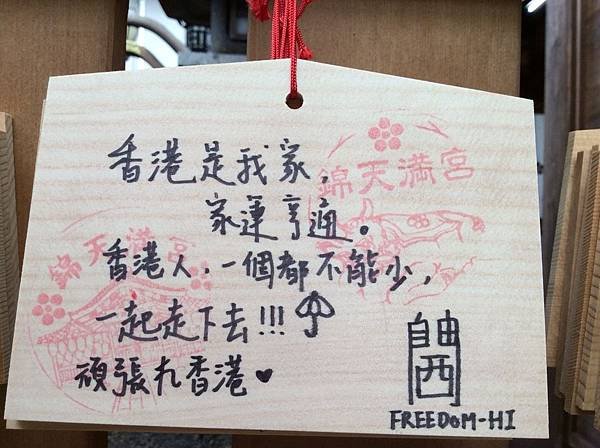 錦天満宮
錦天満宮
香港是我家，
家運亨通。
香港人，一個都不能少，
一起走下去!!!
頑張れ香港♥
自由
西
FREEDOM-HI